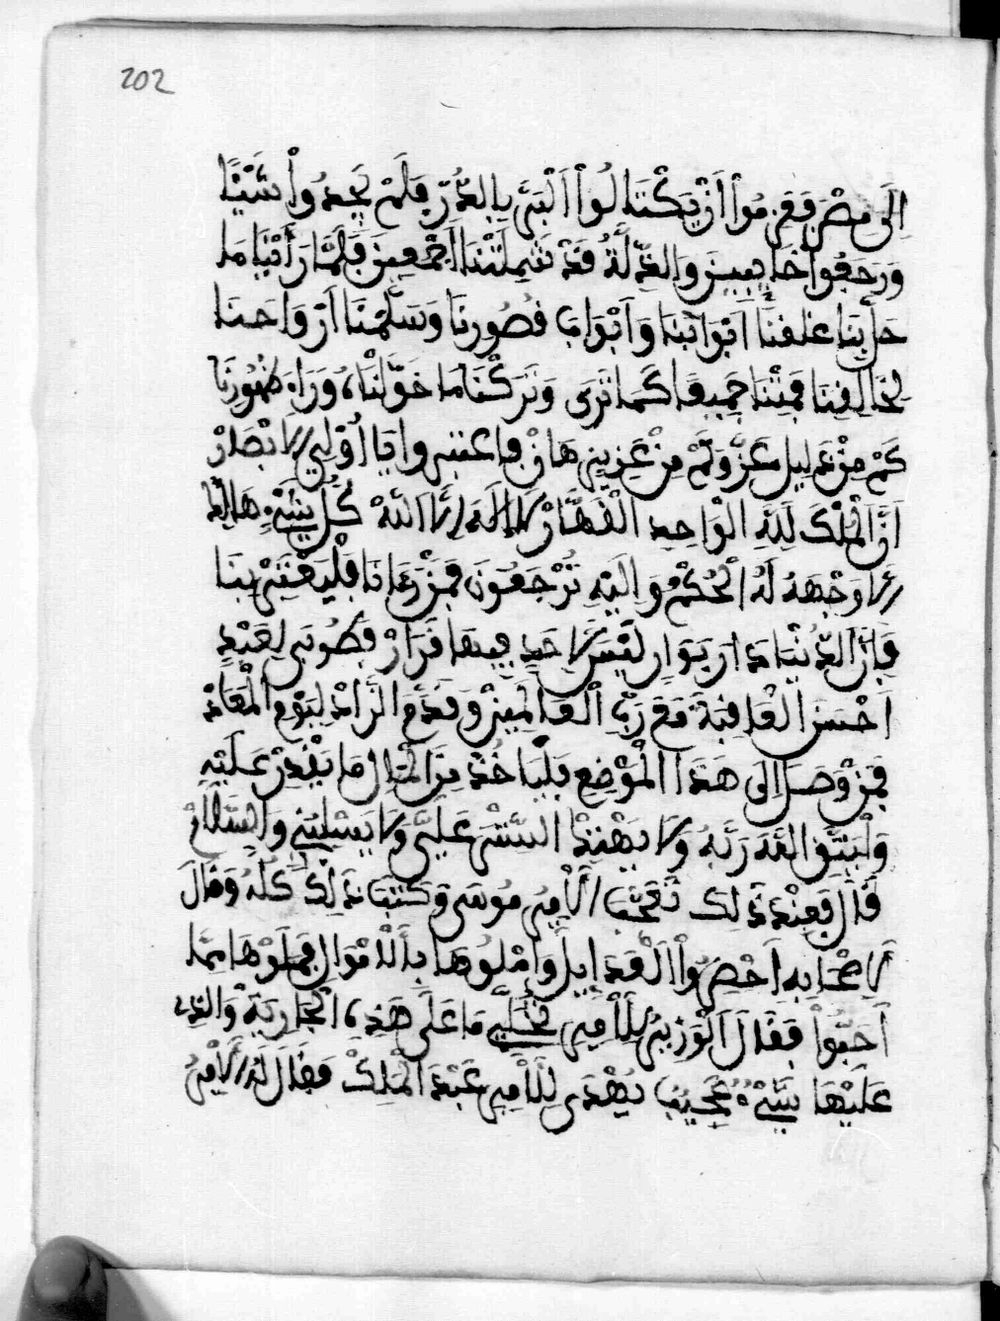 202
الَى مِصْرَ فَعَزَمُواْ أَنْ يَكْتَالُواْ اَلْبَيّ بِالدُّرّ فَلَمْ يَجِدُواْ شَيْئًا
وَرَجَعُواْ خَايِبِينَ وَالذِّلَّةُ قَدْ شَمِلَتْنَا أَجْمَعِينَ فَلَمَّا رَأَيْنَا مَا
حَلَّ بِنَا غلفنَا اَبْوَابَنَا وَاَبْوَابَ قُصُورِنَا وَسَلَّمْنَا اَرْوَاحَنَا
لِخَالِفِنَا فَمِتْنَا جَمِيعًا كَمَا تَرَى وَتَرَكْنَا مَا خَوَّلَنَا وَرَاءَ ظُهُورِنَا
كَمْ مِنْ ذَلِيل عَزَّ وَكَمْ مِنْ عَزِيزٍ هَانْ فاعتبروا يَا أُوْلِي الاَبْصَارْ
اَنَّ الْمُلْكَ لِلَّهِ الْوَاحِدِ الْقَهَّارْ لاَ إِلَهَ إِلاَّ اللَّهْ كُلُّ شَيْءٍ هَالِكٌ
إِلاَّ وَجْهَهُ لَهُ الْحُكْمُ وَإِلَيْهِ تُرْجَعُونَ فَمَنْ رَءَانَا فَلْيَعْتَبِرْ بِنَا
فَإِنَّ الدُّنْيَا دَارُ بَوَارٍ لَيْسَ لاَحَدٍ فِيهَا قَرَارْ فَطُوبَى لِعَبْدٍ
اَحْسَنَ الْعَاقِبَةَ مَعَ رَبِّ الْعَالَمِينْ وَقَدَّمَ الزَّادْ لِيَوْمِ الْمَعَادْ
فَمَنْ وَصَلَ إِلَى هَذَا الْمَوْضِعِ فَلْيَاخُذْ مِنَ الْمَالِ مَا يَقْدِرْ عَلَيْهِ
وَلْيَتَّقِ اللَّهَ رَبَّهُ وَلاَ يَهْتِكْ السِّتْرَ عَلَيَّ وَلاَ يَسْلِبُنِي وَالسَّلاَمْ
قَالَ فَعِنْدَ ذَلِكَ تَعَجَّبَ الاَمِيرُ مُوسَى وَكَتَبَ ذَلِكَ كُلَّهُ وَقَالَ
لاَصْحَابِهِ اَحْضِرُواْ الْعَدَايِلَ وَامْلُوهَا بِالاَمْوَالِ فَمَلَوْهَا مِمَّا
اَحَبُّواْ فَقَالَ الْوَزِيرُ لِلاَمِيرِ نُخَلِّي مَا عَلَى هَذِهِ الْجَارِيَةْ وَالذِي
عَلَيْهَا شَيْءٌ عَجِيبٌ يُهْدَى لِلاَمِيرِ عَبْدَ الْمَلِكْ فَقَالَ لَهُ الاَمِيرُ